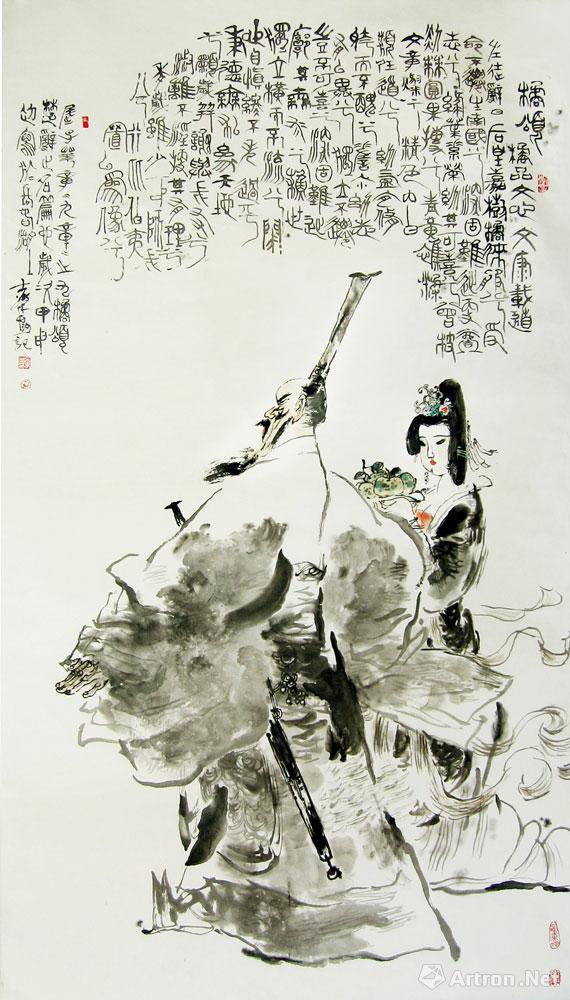 橘頌 橘品文心 文康載道
左徒辭曰 后皇嘉樹橘徠服兮受
命不遷生南國兮深固難徙更壹
志兮綠葉素榮紛其可喜兮曾枝
剡棘圓果摶兮青黃雜糅
文章爛兮精色內白
類任道兮紛縕宜脩
姱而不醜兮嗟爾幼志
有以異兮獨立不遷
豈不可喜兮深固難徙
廓其無求兮蘇世
獨立橫而不流兮閉
心自慎終不失過兮
秉德無私參天地
兮願歲并謝與長友兮
淑離不淫梗其有理兮
年歲雖少可師長
兮行比伯夷
置以為像兮
屈子 九章之九橘頌
楚辭之名篇也歲次甲申
記
Artron.Net